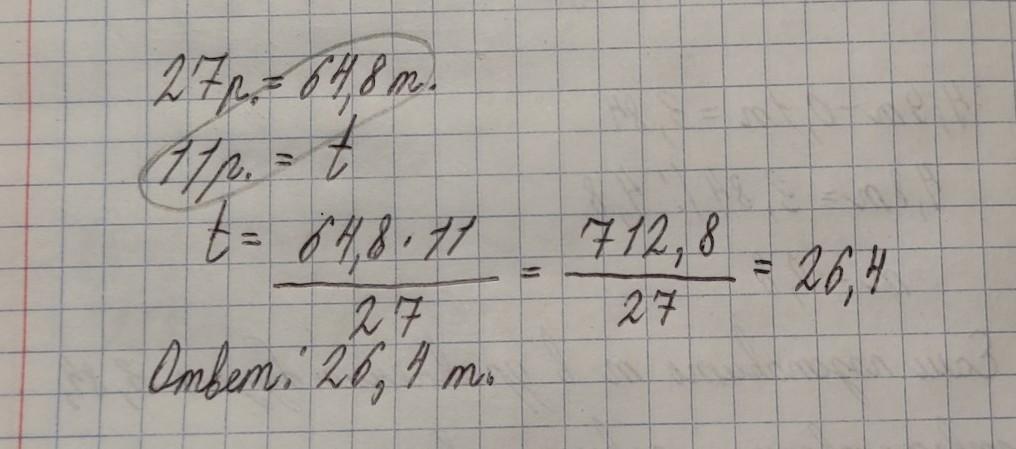 27р. = 64,8 т.
11р. = t
t = 64,8 · 11 / 27 = 712,8 / 27 = 26,4
Ответ: 26,4 т.